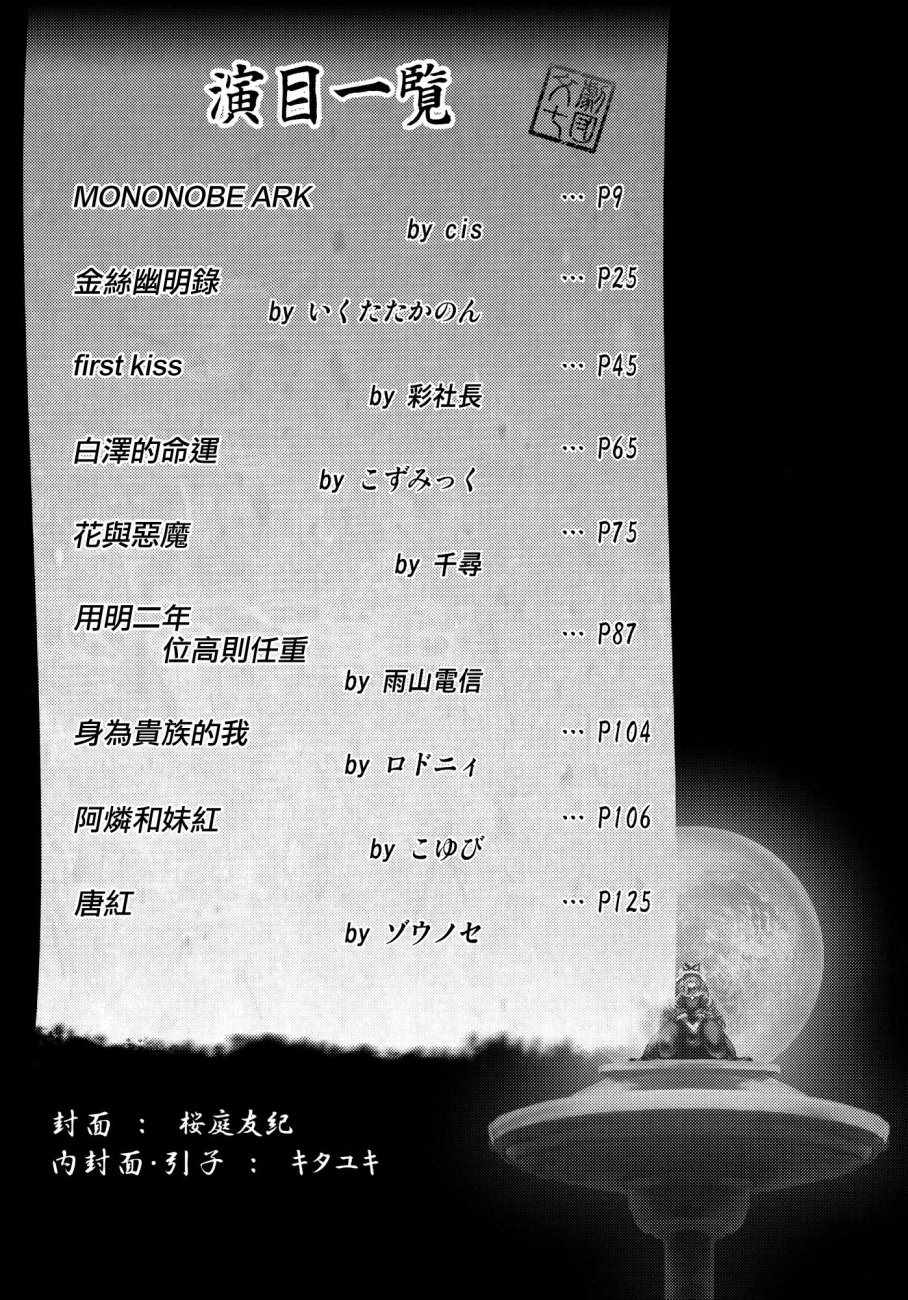 演目一覧
劇団
文七
MONONOBE ARK … P9
by cis
金絲幽明錄 … P25
by いくたたかのん
first kiss … P45
by 彩社長
白澤的命運 … P65
by こずみっく
花與惡魔 … P75
by 千尋
用明二年
位高則任重 … P87
by 雨山電信
身為貴族的我 … P104
by ロドニィ
阿燐和妹紅 … P106
by こゆび
唐紅 … P125
by ゾウノセ
封面 : 桜庭友紀
内封面·引子 : キタユキ